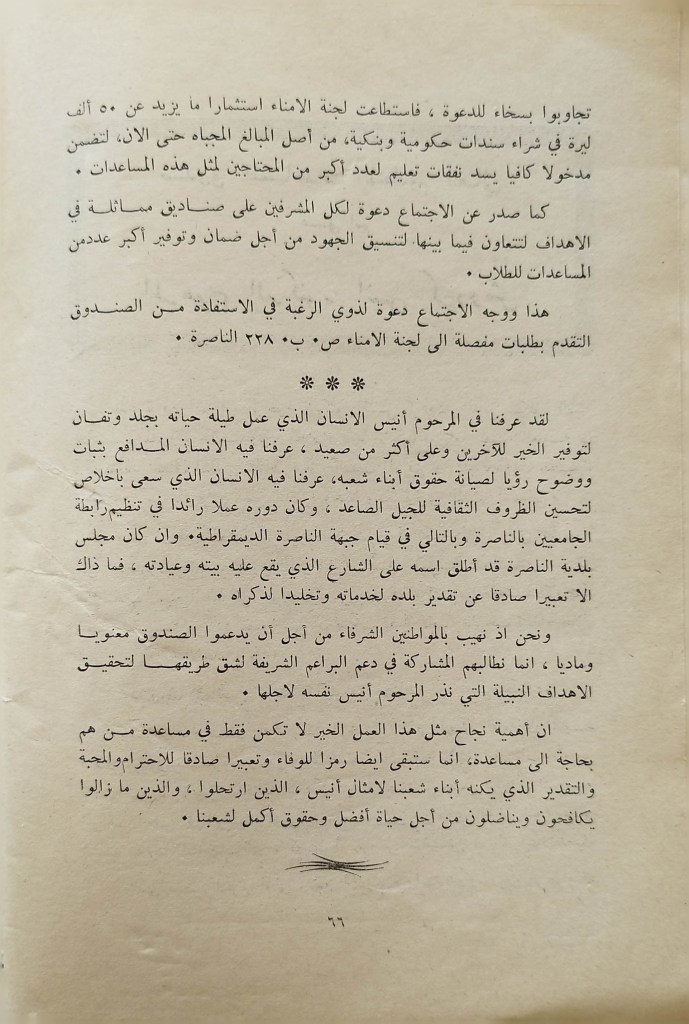 تجاوبوا بسخاء للدعوة ، فاستطاعت لجنة الامناء استثمارا ما يزيد عن ٥٠ ألف
ليرة في شراء سندات حكومية وبنكية، من أصل المبالغ المجباه حتى الان، لتضمن
مدخولا كافيا يسد نفقات تعليم لعدد أكبر من المحتاجين لمثل هذه المساعدات ٠
كما صدر عن الاجتماع دعوة لكل المشرفين على صناديق مماثلة في
الاهداف لتتعاون فيما بينها لتنسيق الجهود من أجل ضمان وتوفير أكبر عددمن
المساعدات للطلاب ٠
هذا ووجه الاجتماع دعوة لذوي الرغبة في الاستفادة من الصندوق
التقدم بطلبات مفصلة الى لجنة الامناء ص٠ ب٠ ٢٢٨ الناصرة ٠
* * *
لقد عرفنا في المرحوم أنيس الانسان الذي عمل طيلة حياته بجلد وتفان
لتوفير الخير للآخرين وعلى أكثر من صعيد ، عرفنا فيه الانسان المدافع بثبات
ووضوح رؤيا لصيانة حقوق أبناء شعبه، عرفنا فيه الانسان الذي سعى باخلاص
لتحسين الظروف الثقافية للجيل الصاعد ، وكان دوره عملا رائدا في تنظيم رابطة
الجامعيين بالناصرة وبالتالي في قيام جبهة الناصرة الديمقراطية٠ وان كان مجلس
بلدية الناصرة قد أطلق اسمه على الشارع الذي يقع عليه بيته وعيادته ، فما ذاك
الا تعبيرا صادقا عن تقدير بلده لخدماته وتخليدا لذكراه ٠
ونحن اذ نهيب بالمواطنين الشرفاء من أجل أن يدعموا الصندوق معنويا
وماديا ، انما نطالبهم المشاركة في دعم البراعم الشريفة لشق طريقها لتحقيق
الاهداف النبيلة التي نذر المرحوم أنيس نفسه لاجلها ٠
ان أهمية نجاح مثل هذا العمل الخير لا تكمن فقط في مساعدة من هم
بحاجة الى مساعدة، انما ستبقى ايضا رمزا للوفاء وتعبيرا صادقا للاحترام والمحبة
والتقدير الذي يكنه أبناء شعبنا لامثال أنيس ، الذين ارتحلوا ، والذين ما زالوا
يكافحون ويناضلون من أجل حياة أفضل وحقوق أكمل لشعبنا ٠
٦٦